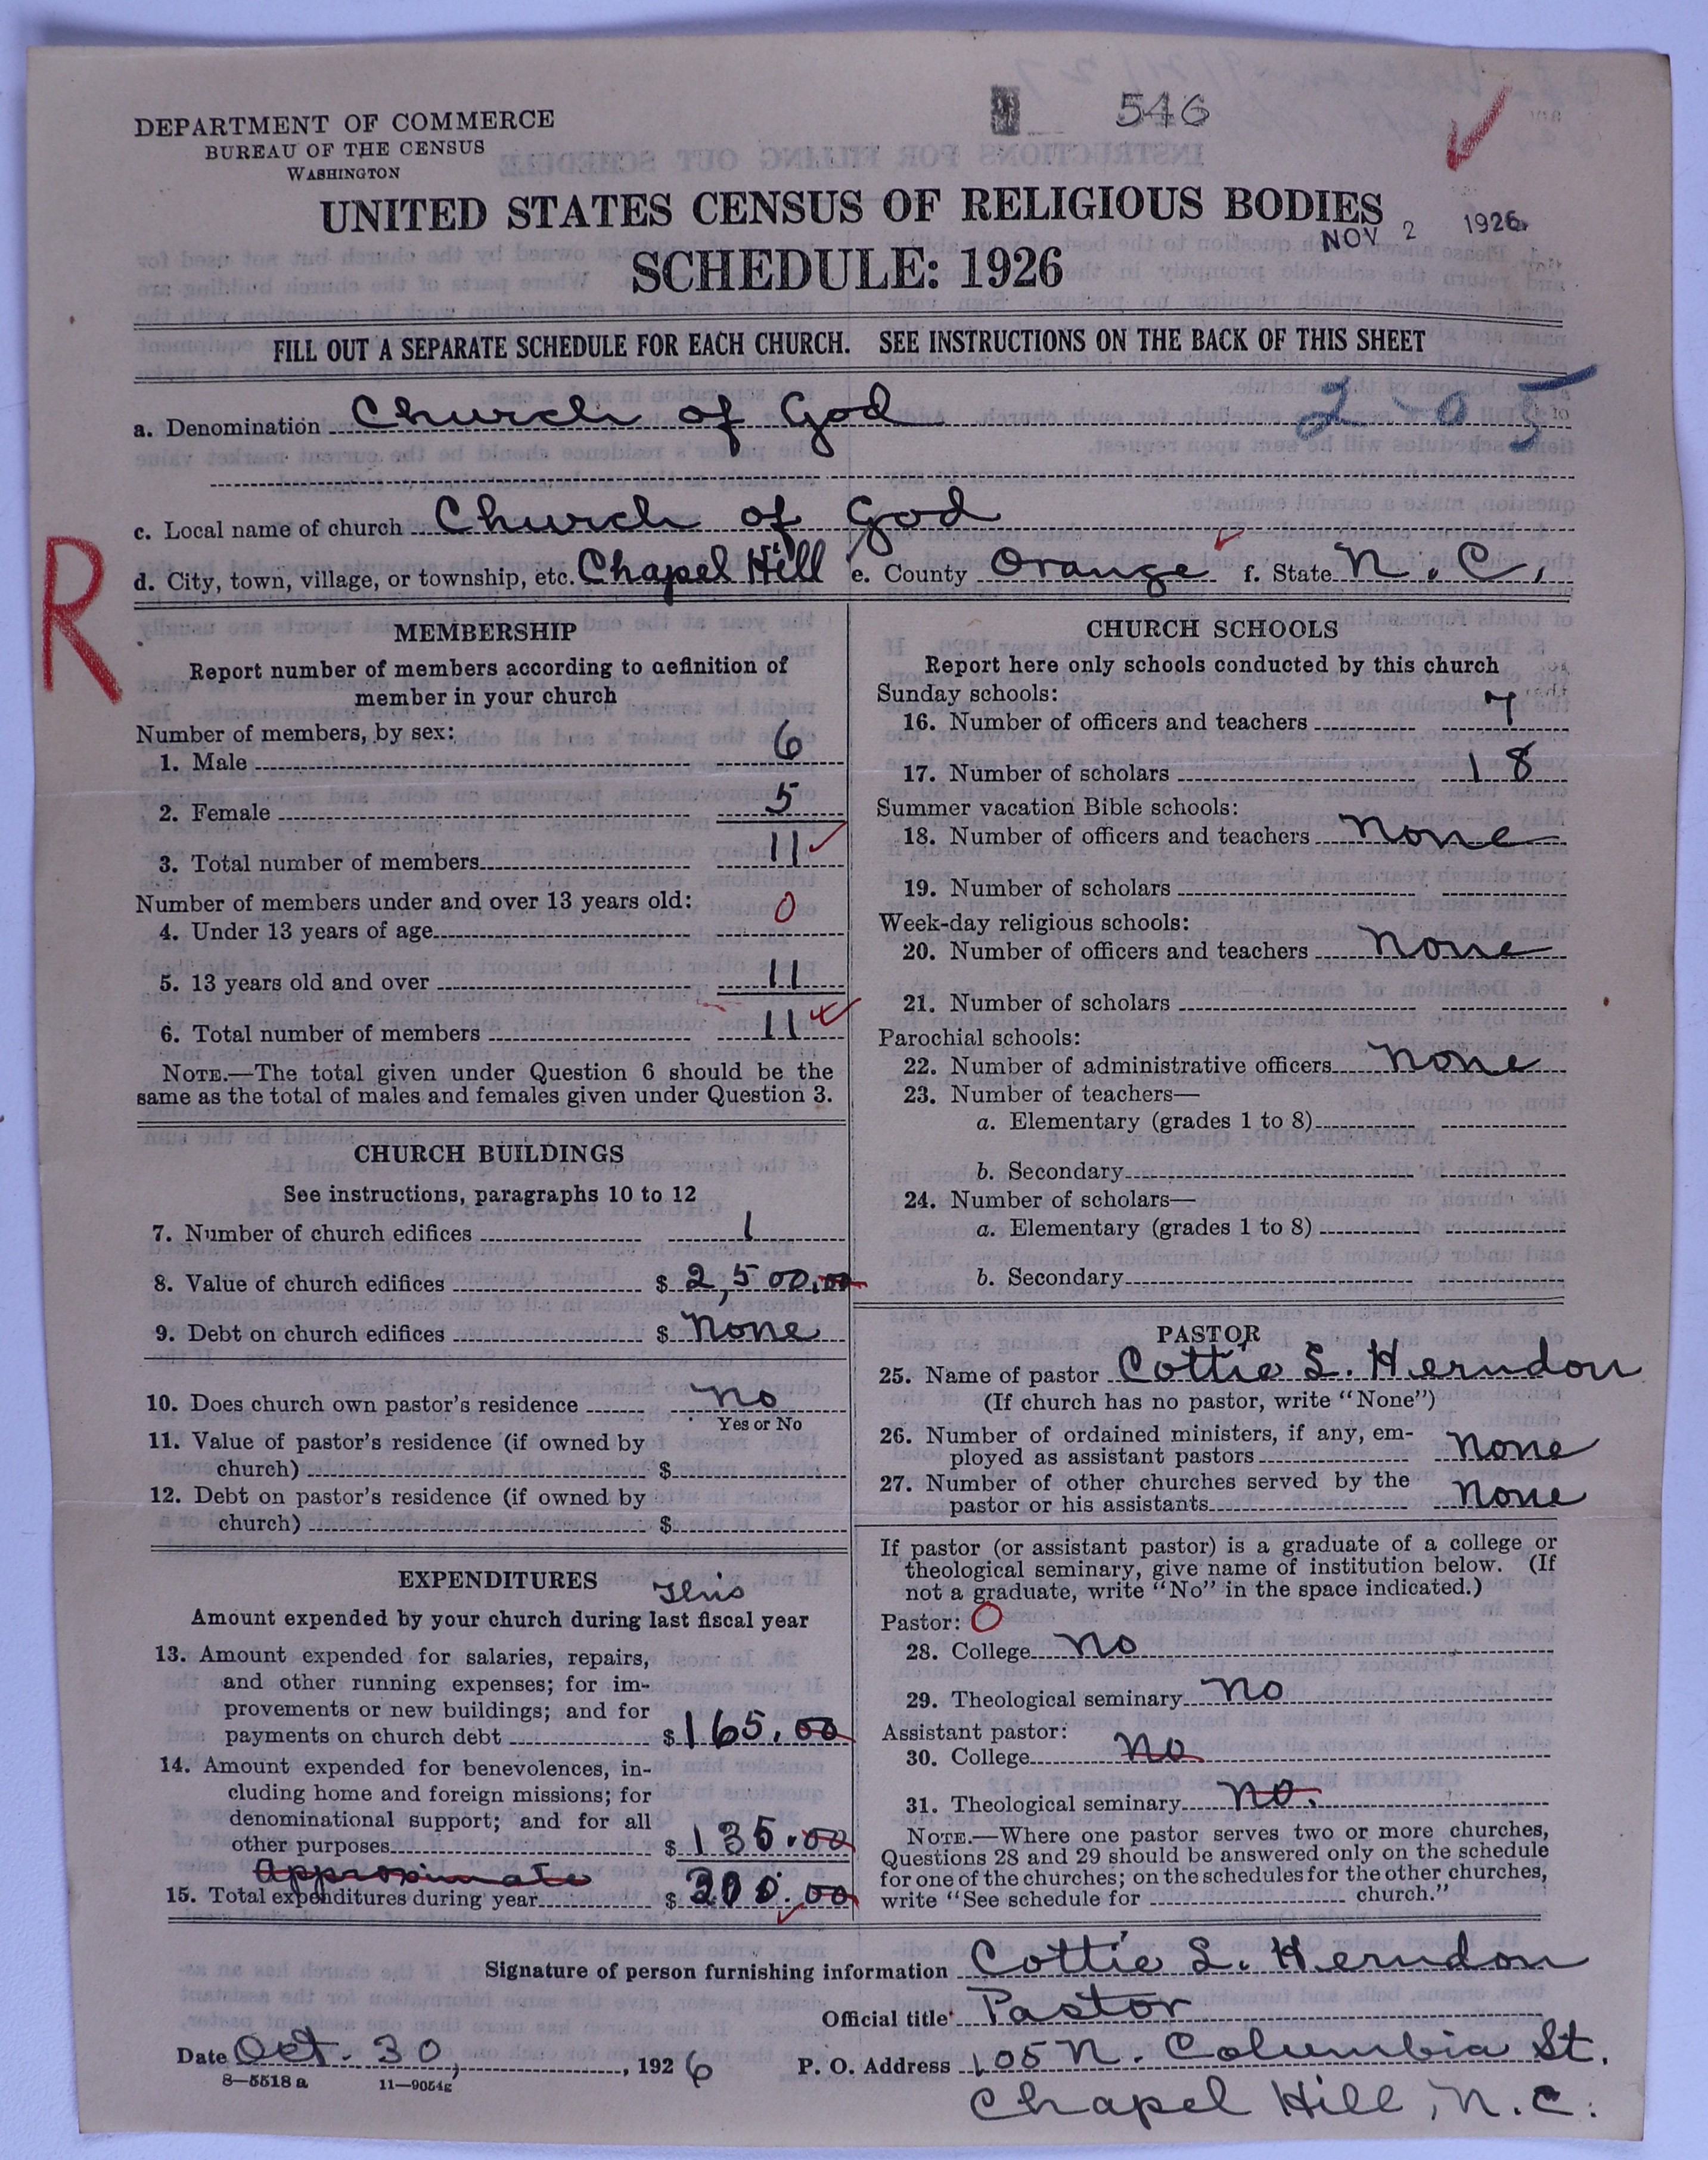 DEPARTMENT OF COMMERCE
BUREAU OF THE CENSUS
WASHINGTON
546
UNITED STATES CENSUS OF RELIGIOUS BODIES
NOV 2 1926
SCHEDULE: 1926
FILL OUT A SEPARATE SCHEDULE FOR EACH CHURCH. SEE INSTRUCTIONS ON THE BACK OF THIS SHEET
a. Denomination Church of God 2-05
c. Local name of church Church of God
d. City, town, village, or township, etc. Chapel Hill e. County Orange f. State N. C.
R
MEMBERSHIP
Report number of members according to definition of
member in your church
Number of members, by sex:
1. Male 6
2. Female 5
3. Total number of members 11
Number of members under and over 13 years old:
4. Under 13 years of age 0
5. 13 years old and over 11
6. Total number of members 11
NOTE.—The total given under Question 6 should be the
same as the total of males and females given under Question 3.
CHURCH BUILDINGS
See instructions, paragraphs 10 to 12
7. Number of church edifices 1
8. Value of church edifices $ 2,500.00
9. Debt on church edifices $ None
10. Does church own pastor's residence No
Yes or No
11. Value of pastor's residence (if owned by
church) $
12. Debt on pastor's residence (if owned by
church) $
EXPENDITURES
This
Amount expended by your church during last fiscal year
13. Amount expended for salaries, repairs,
and other running expenses; for im-
provements or new buildings; and for
payments on church debt $ 165.00
14. Amount expended for benevolences, in-
cluding home and foreign missions; for
denominational support; and for all
other purposes $ 135.00
Approximate
15. Total expenditures during year $ 300.00
CHURCH SCHOOLS
Report here only schools conducted by this church
Sunday schools:
16. Number of officers and teachers 7
17. Number of scholars 18
Summer vacation Bible schools:
18. Number of officers and teachers None
19. Number of scholars
Week-day religious schools:
20. Number of officers and teachers None
21. Number of scholars
Parochial schools:
22. Number of administrative officers None
23. Number of teachers—
a. Elementary (grades 1 to 8)
b. Secondary
24. Number of scholars—
a. Elementary (grades 1 to 8)
b. Secondary
PASTOR
25. Name of pastor Cottie S. Herndon
(If church has no pastor, write "None")
26. Number of ordained ministers, if any, em-
ployed as assistant pastors None
27. Number of other churches served by the
pastor or his assistants None
If pastor (or assistant pastor) is a graduate of a college or
theological seminary, give name of institution below. (If
not a graduate, write "No" in the space indicated.)
Pastor: O
28. College No
29. Theological seminary No
Assistant pastor:
30. College No
31. Theological seminary No.
NOTE.—Where one pastor serves two or more churches,
Questions 28 and 29 should be answered only on the schedule
for one of the churches; on the schedules for the other churches,
write "See schedule for church."
Signature of person furnishing information Cottie S. Herndon
Official title Pastor
Date Oct. 30, 1926 P. O. Address 105 N. Columbia St.
8—5518 a 11—9054g
Chapel Hill, N.C.